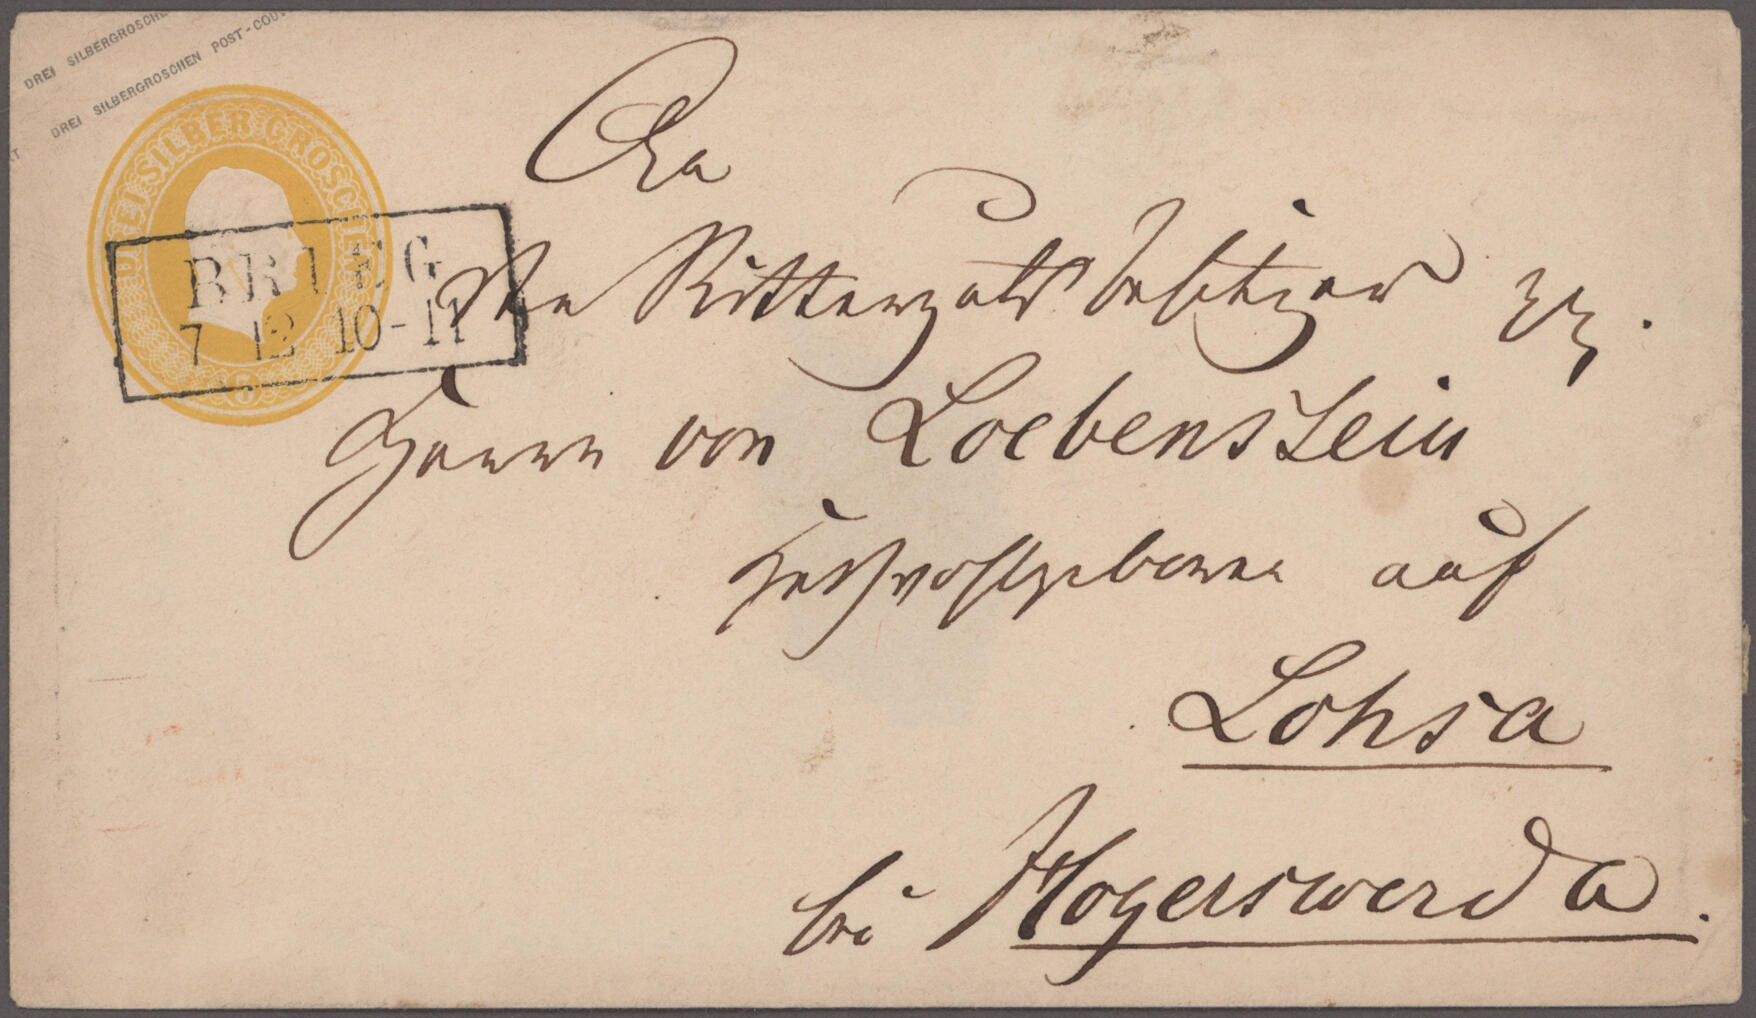 DREI SILBERGROSCHE
DREI SILBERGROSCHEN POST-COUV
DREI SILBER GROSCHEN
3
BRIEG
7 12 10-11
An
den Rittergutsbesitzer
Herrn von Loebenstein
Hochwohlgeboren auf
Lohsa
bei Hoyerswerda.